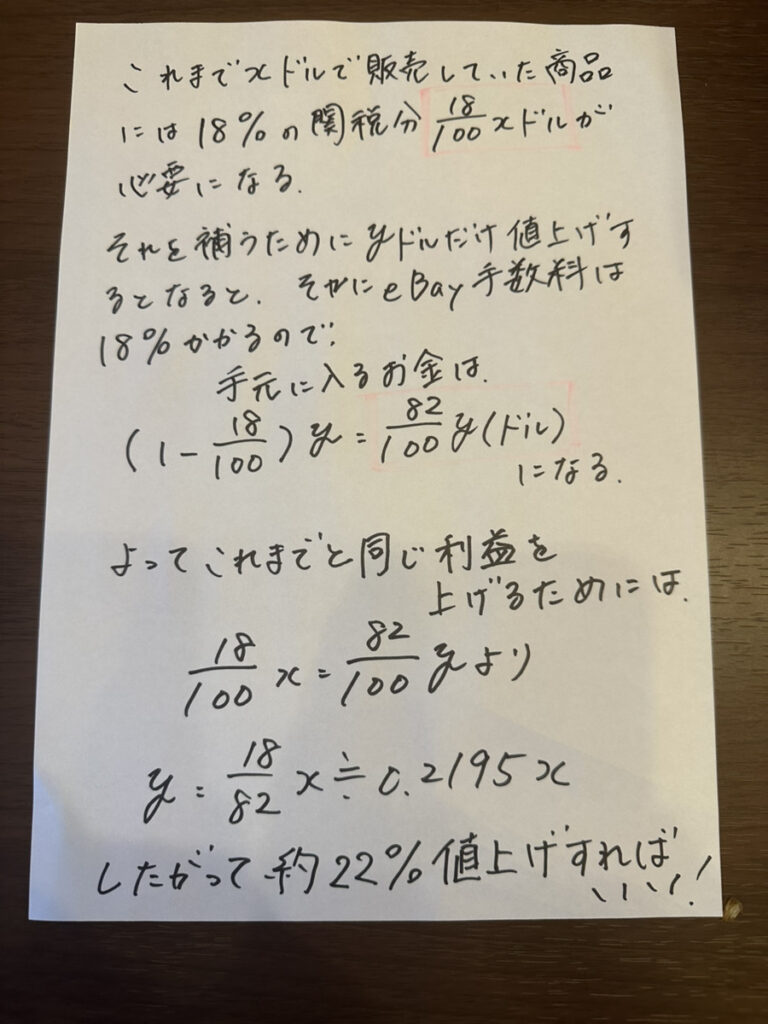 これまでxドルで販売していた商品
には18%の関税分 18/100 xドルが
必要になる.
それを補うためにyドルだけ値上げす
るとなると、それにeBay手数料は
18%かかるので、
手元に入るお金は、
(1 - 18/100) y = 82/100 y (ドル)
になる.
よってこれまでと同じ利益を
上げるためには、
18/100 x = 82/100 y より
y = 18/82 x ≒ 0.2195x
したがって約22%値上げすれば
いい!